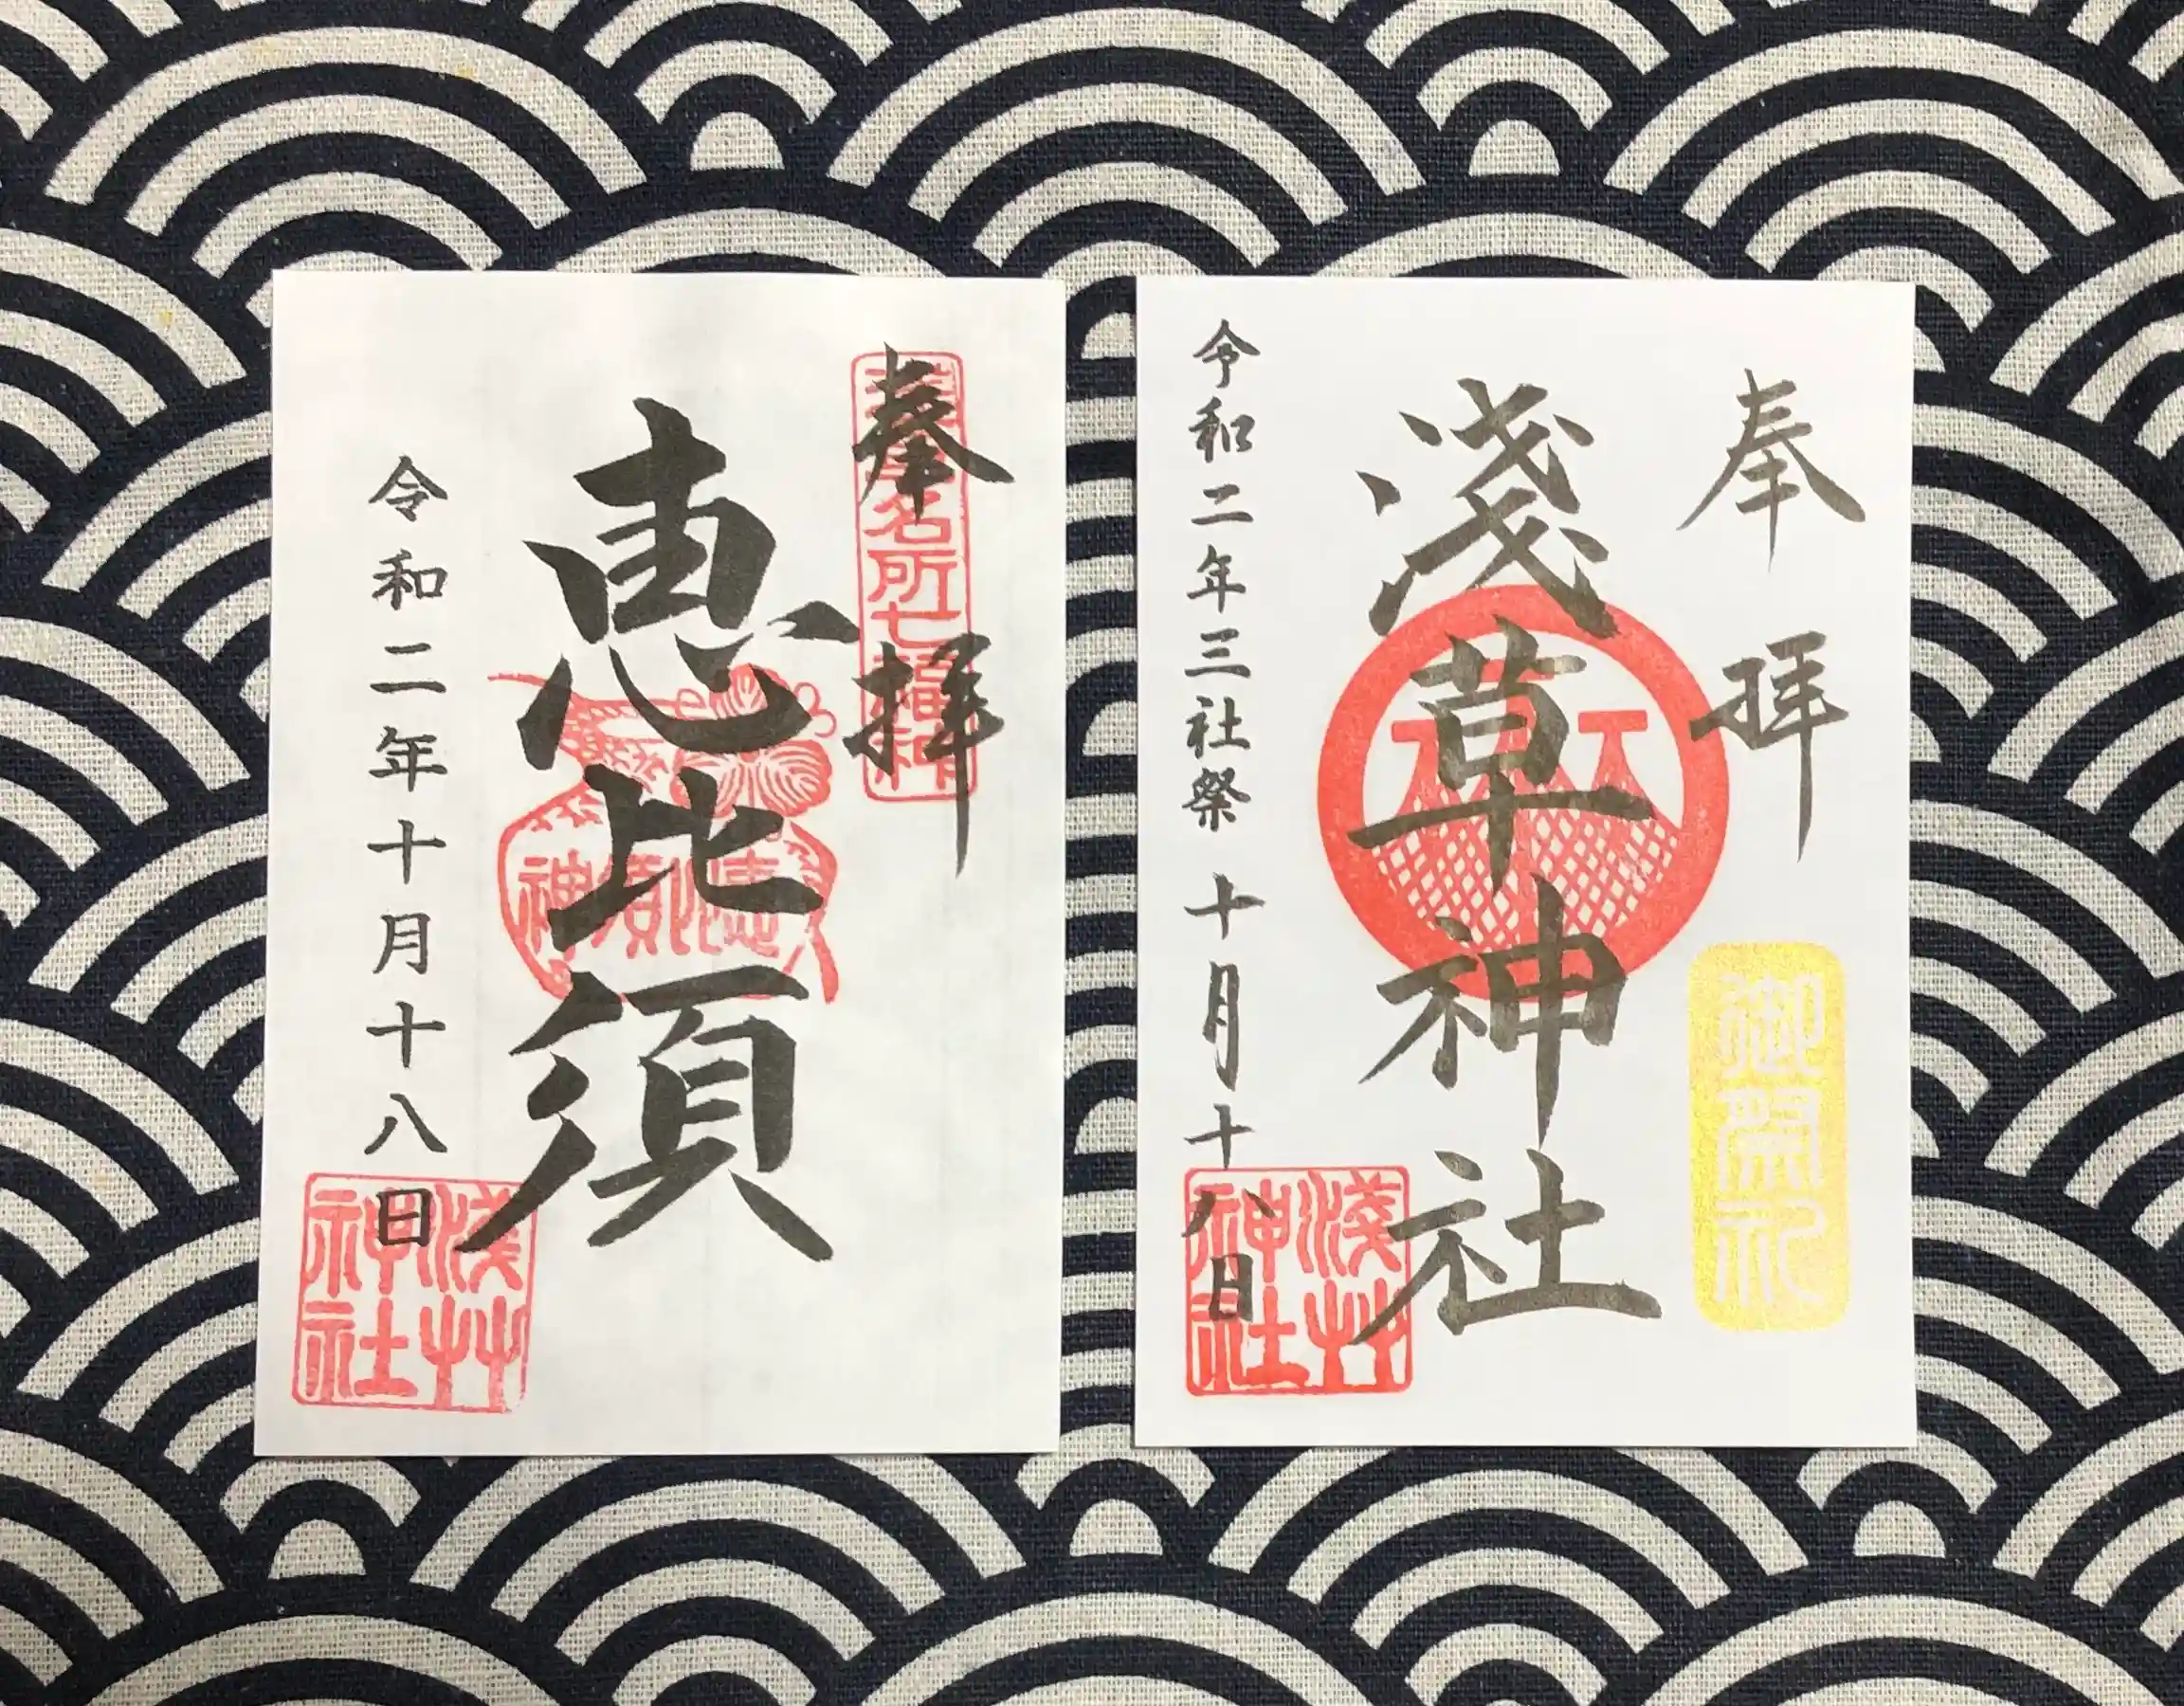 奉拝
浅草名所七福神
恵比須
恵比須神
令和二年十月十八日
浅草神社
奉拝
御祭礼
浅草神社
令和二年三社祭 十月十八日
浅草神社